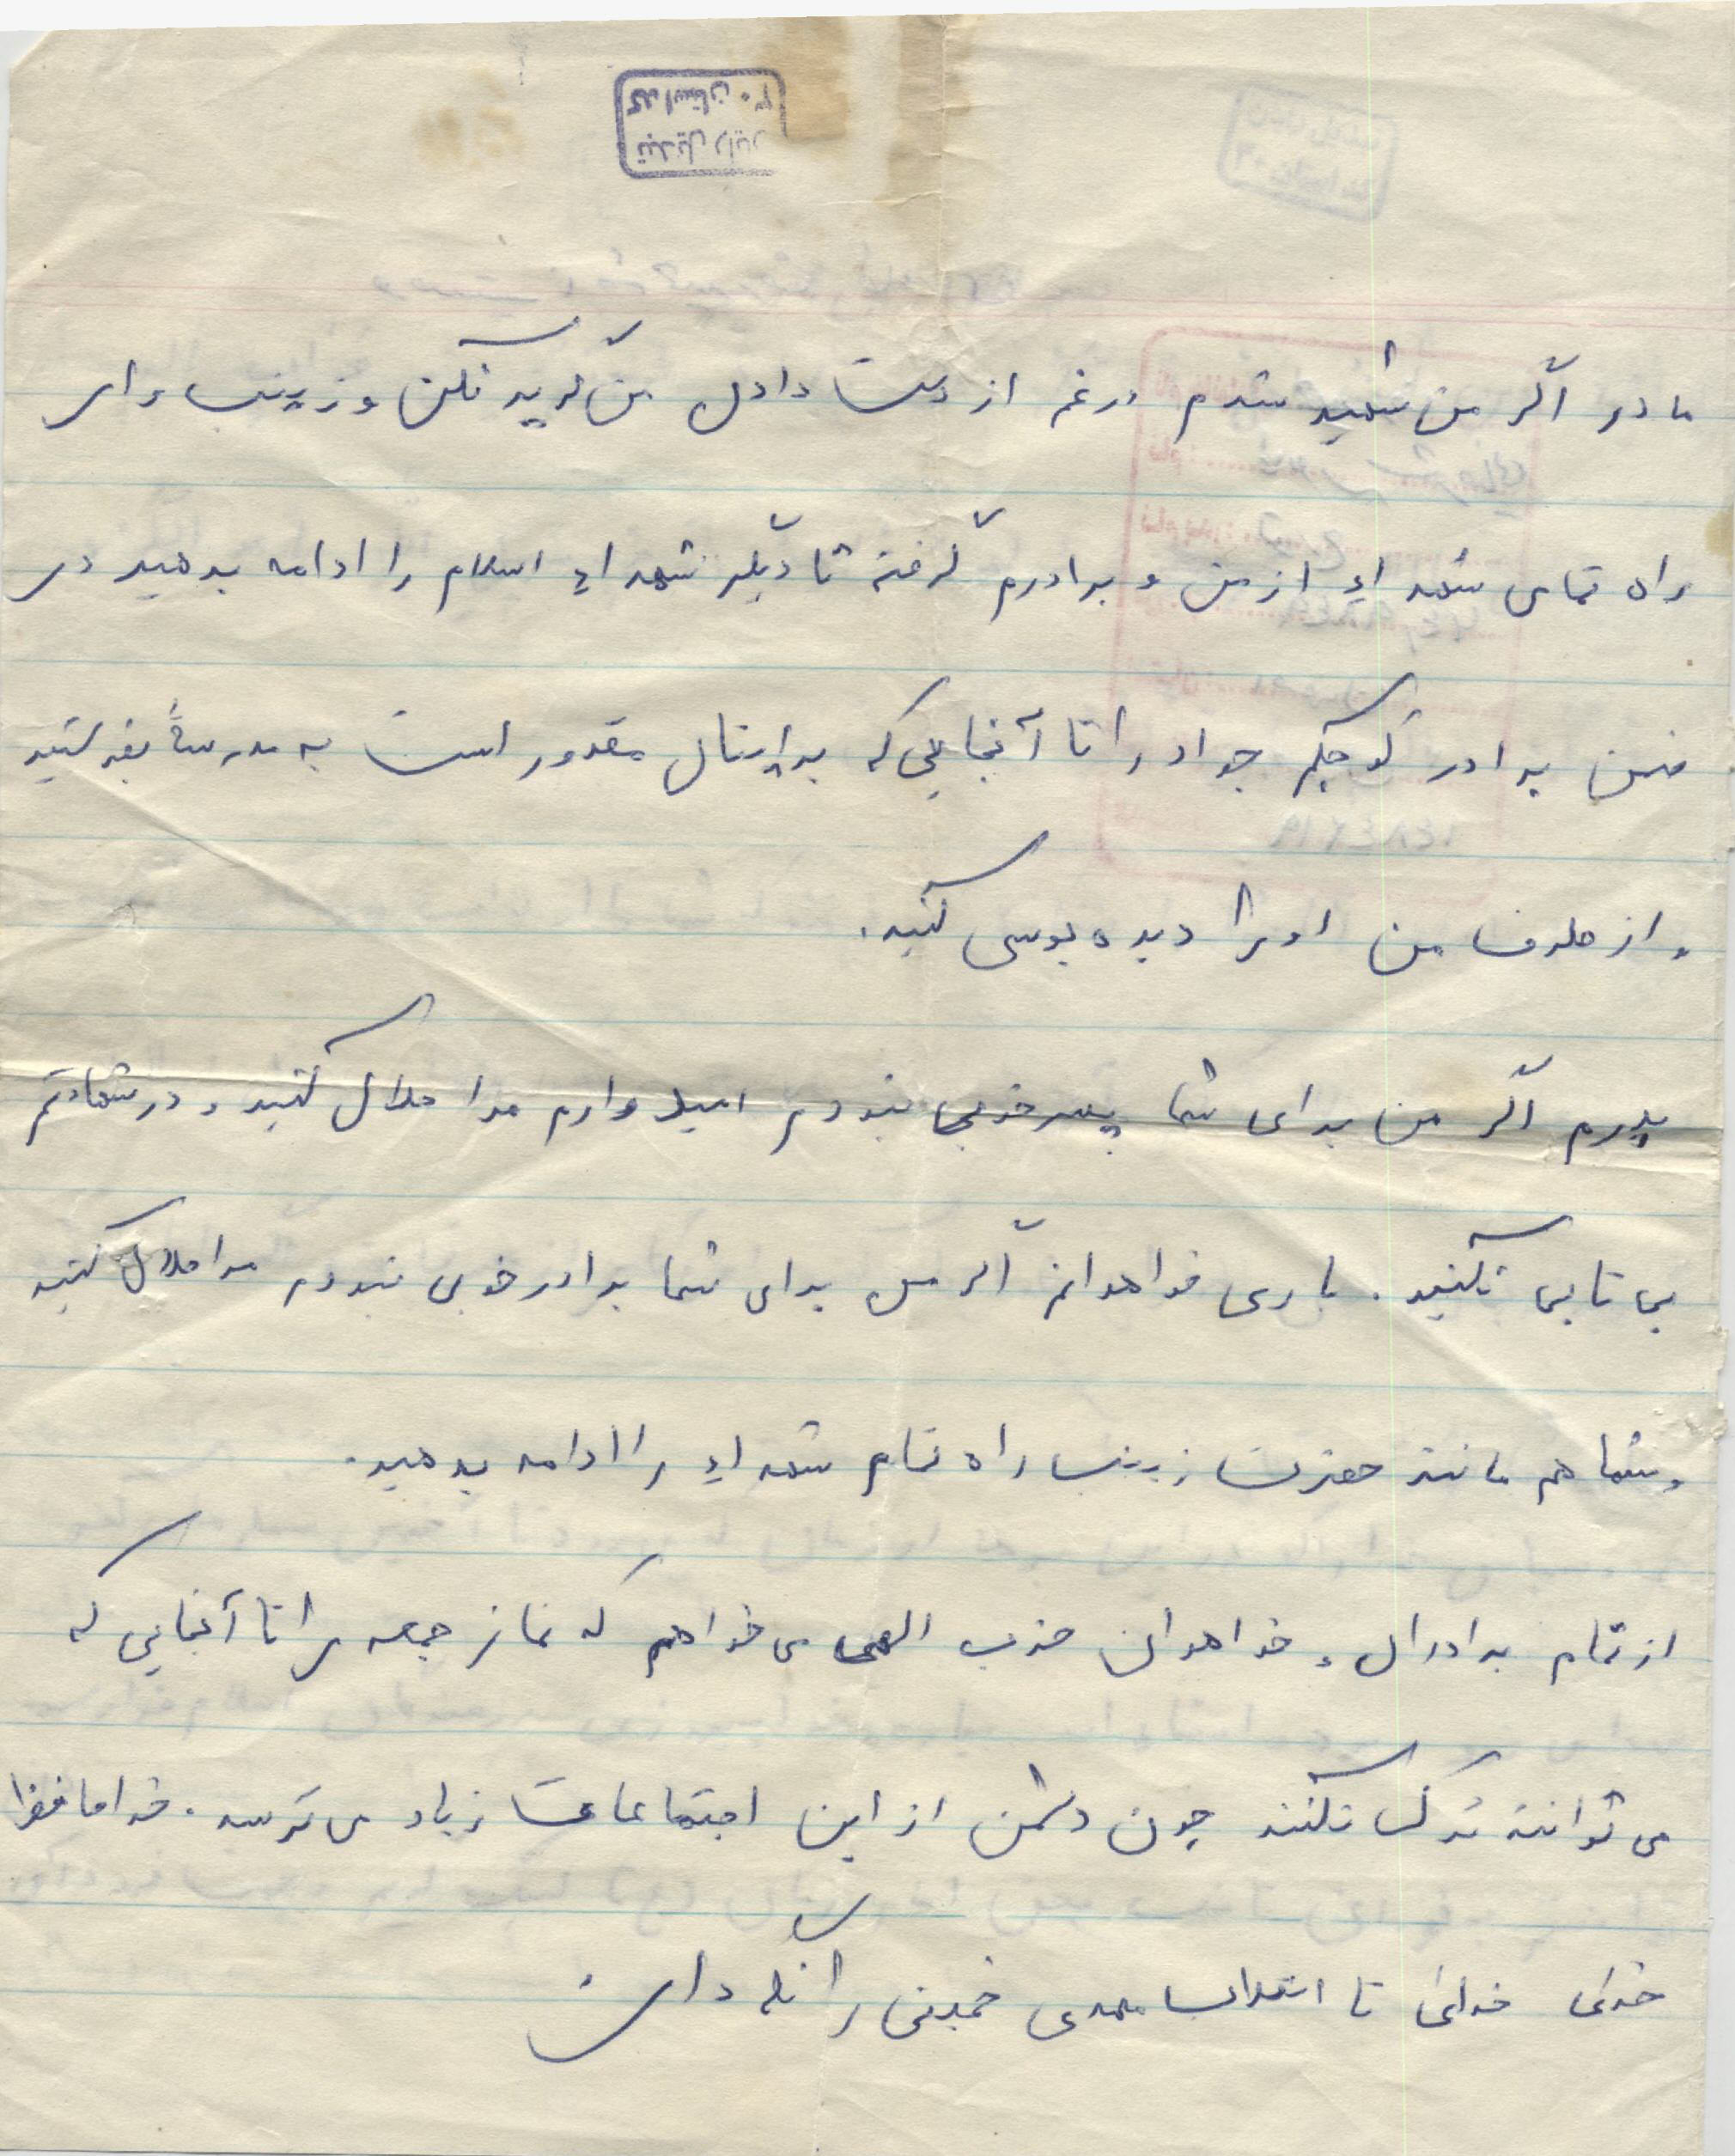 تبدیل رایا
کد استان ۳۰
مادر اگر من شهید شدم در غم از دست دادن من گریه نکن و زینب وار
راه تمامی شهداء از من و برادرم گرفته تا دیگر شهداء اسلام را ادامه بدهید در
ضمن برادر کوچکم جواد را تا آنجایی که برایتان مقدور است به مدرسهٔ بفرستید
و از طرف من او را دیده بوسی کنید.
پدرم اگر من برای شما پسر خوبی نبودم امیدوارم مرا حلال کنید و در شهادتم
بی تابی نکنید. باری خواهرانم اگر من برای شما برادر خوبی نبودم مرا حلال کنید
و شما هم مانند حضرت زینب راه تمام شهداء را ادامه بدهید.
از تمام برادران و خواهران حزب الهی می خواهم که نماز جمعه را تا آنجایی که
می توانند ترک نکنند چون دشمن از این اجتماعات زیاد می ترسد. خداحافظ
خدای خدایا تا انقلاب مهدی خمینی را نگه دار